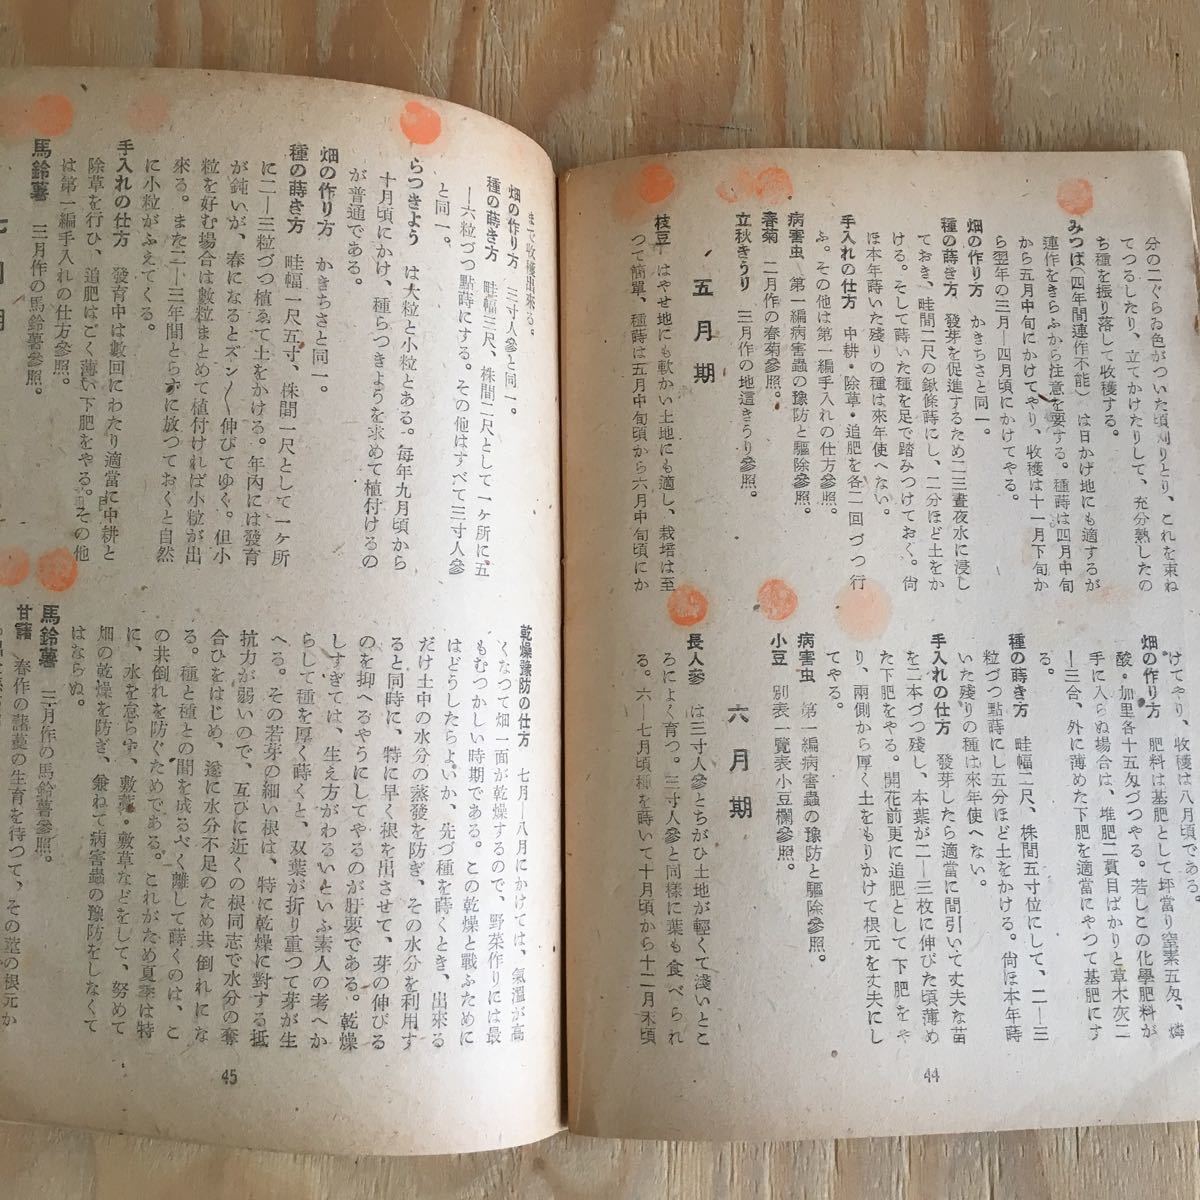 分の二ぐらゐ色がついた頃刈りとり、これを束ね
てつるしたり、立てかけたりして、充分熟したの
ち種を振り落して收穫する。
みつば(四年間連作不能) は日かげ地にも適するが
連作をきらふから注意を要する。種蒔は四月中旬
から五月中旬にかけてやり、收穫は十一月下旬か
ら翌年の三月―四月頃にかけてやる。
畑の作り方 かきちさと同一。
種の蒔き方 發芽を促進するため二三晝夜水に浸し
ておき、畦間一尺の鍬條蒔にし、二分ほど土をか
ける。そして蒔いた種を足で踏みつけておく。尙
ほ本年蒔いた殘りの種は來年使へない。
手入れの仕方 中耕・除草・追肥を各二回づつ行
ふ。その他は第一編手入れの仕方參照。
病害虫 第一編病害蟲の豫防と驅除參照。
春菊 二月作の春菊參照。
立秋きうり 三月作の地這きうり參照。
五月期
枝豆 はやせ地にも軟かい土地にも適し、栽培は至
つて簡單、種蒔は五月中旬頃から六月中旬頃にか
けてやり、收穫は八月頃である。
畑の作り方 肥料は基肥として坪當り窒素五匁、燐
酸・加里各十五匁づつやる。若しこの化學肥料が
手に入らぬ場合は、堆肥二貫目ばかりと草木灰二
―三合、外に薄めた下肥を適當にやつて基肥にす
る。
種の蒔き方 畦幅二尺、株間五寸位にして、二―三
粒づつ點蒔にし五分ほど土をかける。尙ほ本年蒔
いた殘りの種は來年使へない。
手入れの仕方 發芽したら適當に間引いて丈夫な苗
を二本づつ殘し、本葉が二―三枚に伸びた頃薄め
た下肥をやる。開花前更に追肥として下肥をや
り、兩側から厚く土をもりかけて根元を丈夫にし
てやる。
病害虫 第一編病害蟲の豫防と驅除參照。
小豆 別表一覽表小豆欄參照。
六月期
長人參 は三寸人參とちがひ土地が輕くて淺いとこ
ろによく育つ。三寸人參と同樣に葉も食べられ
る。六―七月頃種を蒔いて十月頃から十二月末頃
44
まで收穫出來る。
畑の作り方 三寸人參と同一。
種の蒔き方 畦幅三尺、株間一尺として一ヶ所に五
―六粒づつ點蒔にする。その他はすべて三寸人參
と同一。
らつきよう は大粒と小粒とある。每年九月頃から
十月頃にかけ、種らつきようを求めて植付けるの
が普通である。
畑の作り方 かきちさと同一。
種の蒔き方 畦幅一尺五寸、株間一尺として一ヶ所
に二―三粒づつ植ゑて土をかける。年內には發育
が鈍いが、春になるとズン〱伸びてゆく。但小
粒を好む場合は數粒まとめて植付ければ小粒が出
來る。また二―三年間とらずに放つておくと自然
に小粒がふえてくる。
手入れの仕方 發育中は數回にわたり適當に中耕と
除草を行ひ、追肥はごく薄い下肥をやる。その他
は第一編手入れの仕方參照。
馬鈴薯 三月作の馬鈴薯參照。
七月期
乾燥豫防の仕方 七月―八月にかけては、氣溫が高
くなつて畑一面が乾燥するので、野菜作りには最
もむつかしい時期である。この乾燥と戰ふために
はどうしたらよいか、先づ種を蒔くとき、出來る
だけ土中の水分の蒸發を防ぎ、その水分を利用す
ると同時に、特に早く根を出させて、芽の伸びる
のを抑へるやうにしてやるのが肝要である。乾燥
しすぎては、生え方がわるいといふ素人の考へか
らして種を厚く蒔くと、双葉が折り重つて芽が生
へる。その若芽の細い根は、特に乾燥に對する抵
抗力が弱いので、互ひに近くの根同志で水分の奪
合ひをはじめ、遂に水分不足のため共倒れにな
る。種と種との間を成るべく離して蒔くのは、こ
の共倒れを防ぐためである。これがため夏季は特
に、水を怠らず、敷藁・敷草などをして、努めて
畑の乾燥を防ぎ、兼ねて病害蟲の豫防をしなくて
はならぬ。
馬鈴薯 三月作の馬鈴薯參照。
甘藷 春作の諸蔓の生育を待つて、その莖の根元か
45